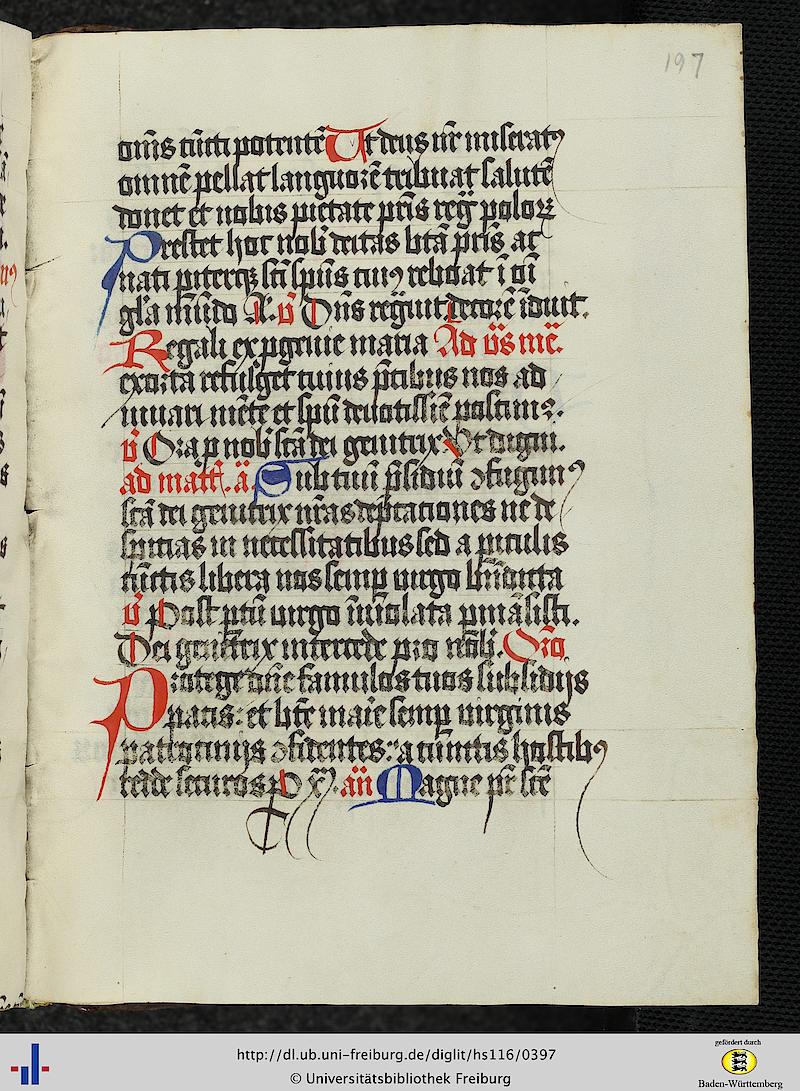 197
om̄s cūcti potentē Ut deus nr̄ miseratꝰ
omnē pellat languorē tribuat salutē
donet et nobis pietate pr̄is reg̃ polorꝝ
Prestet hoc nob̃ deitas bt̄a pr̄is ac
nati piterqꝫ sc̄i sp̄us cuiꝰ reboat ī oī
gl̄a mūdo A. v̄ Dn̄s reg̃uit decorē īduit.
Regali ex ꝓgenie maria Ad v̄s mē.
exorta refulget cuius p̄cibus nos ad
iuuari mēte et sp̄u deuotissīe poscimꝰ.
v̄ Ora ꝓ nob̃ scā dei genitrix Vt dignī.
ad matt̄. ā. Sub tuū p̄sidiū ꝯfugimꝰ
scā dei genitrix nr̄as dep̄cationes ne de
spicias in necessitatibus sed a piculis
cūctis libera nos semꝑ uirgo bn̄dicta
v̄ Post ptū uirgo īuiolata pmāsisti.
Dei genitrix intercede pro nob̃. Oro
Protege dn̄e famulos tuos subsidijs
pacis: et bt̄e marie semꝑ uirginis
patrocinijs ꝯfidentes: a cūctis hostibꝰ
redde securos P x̄. an̄ Magne pr̄ sc̄e
http://dl.ub.uni-freiburg.de/diglit/hs116/0397
© Universitätsbibliothek Freiburg
gefördert durch
Baden-Württemberg